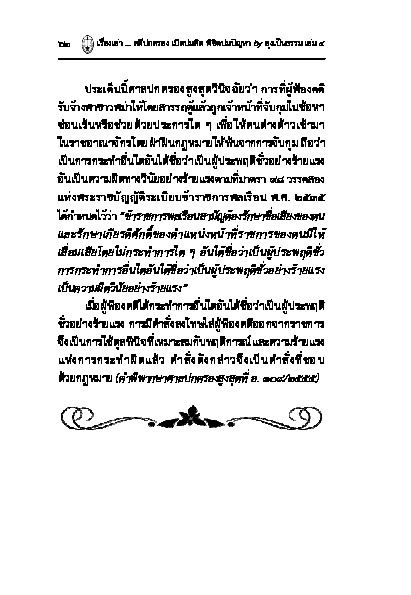 ๒๒ เรื่องเล่า ... คดีปกครอง เปิดปมคิด พิชิตปมปัญหา by ลุงเป็นธรรม เล่ม ๔
ประเด็นนี้ศาลปกครองสูงสุดวินิจฉัยว่า การที่ผู้ฟ้องคดี
รับจ้างพาชาวพม่าให้โดยสารรถตู้แล้วถูกเจ้าหน้าที่จับกุมในข้อหา
ซ่อนเร้นหรือช่วยด้วยประการใด ๆ เพื่อให้คนต่างด้าวเข้ามา
ในราชอาณาจักรโดยฝ่าฝืนกฎหมายให้พ้นจากการจับกุม ถือว่า
เป็นการกระทำอื่นใดอันได้ชื่อว่าเป็นผู้ประพฤติชั่วอย่างร้ายแรง
อันเป็นความผิดทางวินัยอย่างร้ายแรงตามที่มาตรา ๙๘ วรรคสอง
แห่งพระราชบัญญัติระเบียบข้าราชการพลเรือน พ.ศ. ๒๕๓๕
ได้กำหนดไว้ว่า “ข้าราชการพลเรือนสามัญต้องรักษาชื่อเสียงของตน
และรักษาเกียรติศักดิ์ของตำแหน่งหน้าที่ราชการของตนมิให้
เสื่อมเสียโดยไม่กระทำการใด ๆ อันได้ชื่อว่าเป็นผู้ประพฤติชั่ว
การกระทำการอื่นใดอันได้ชื่อว่าเป็นผู้ประพฤติชั่วอย่างร้ายแรง
เป็นความผิดวินัยอย่างร้ายแรง”
เมื่อผู้ฟ้องคดีได้กระทำการอื่นใดอันได้ชื่อว่าเป็นผู้ประพฤติ
ชั่วอย่างร้ายแรง การมีคำสั่งลงโทษไล่ผู้ฟ้องคดีออกจากราชการ
จึงเป็นการใช้ดุลพินิจที่เหมาะสมกับพฤติการณ์และความร้ายแรง
แห่งการกระทำผิดแล้ว คำสั่งดังกล่าวจึงเป็นคำสั่งที่ชอบ
ด้วยกฎหมาย (คำพิพากษาศาลปกครองสูงสุดที่ อ. ๑๐๘/๒๕๕๕)